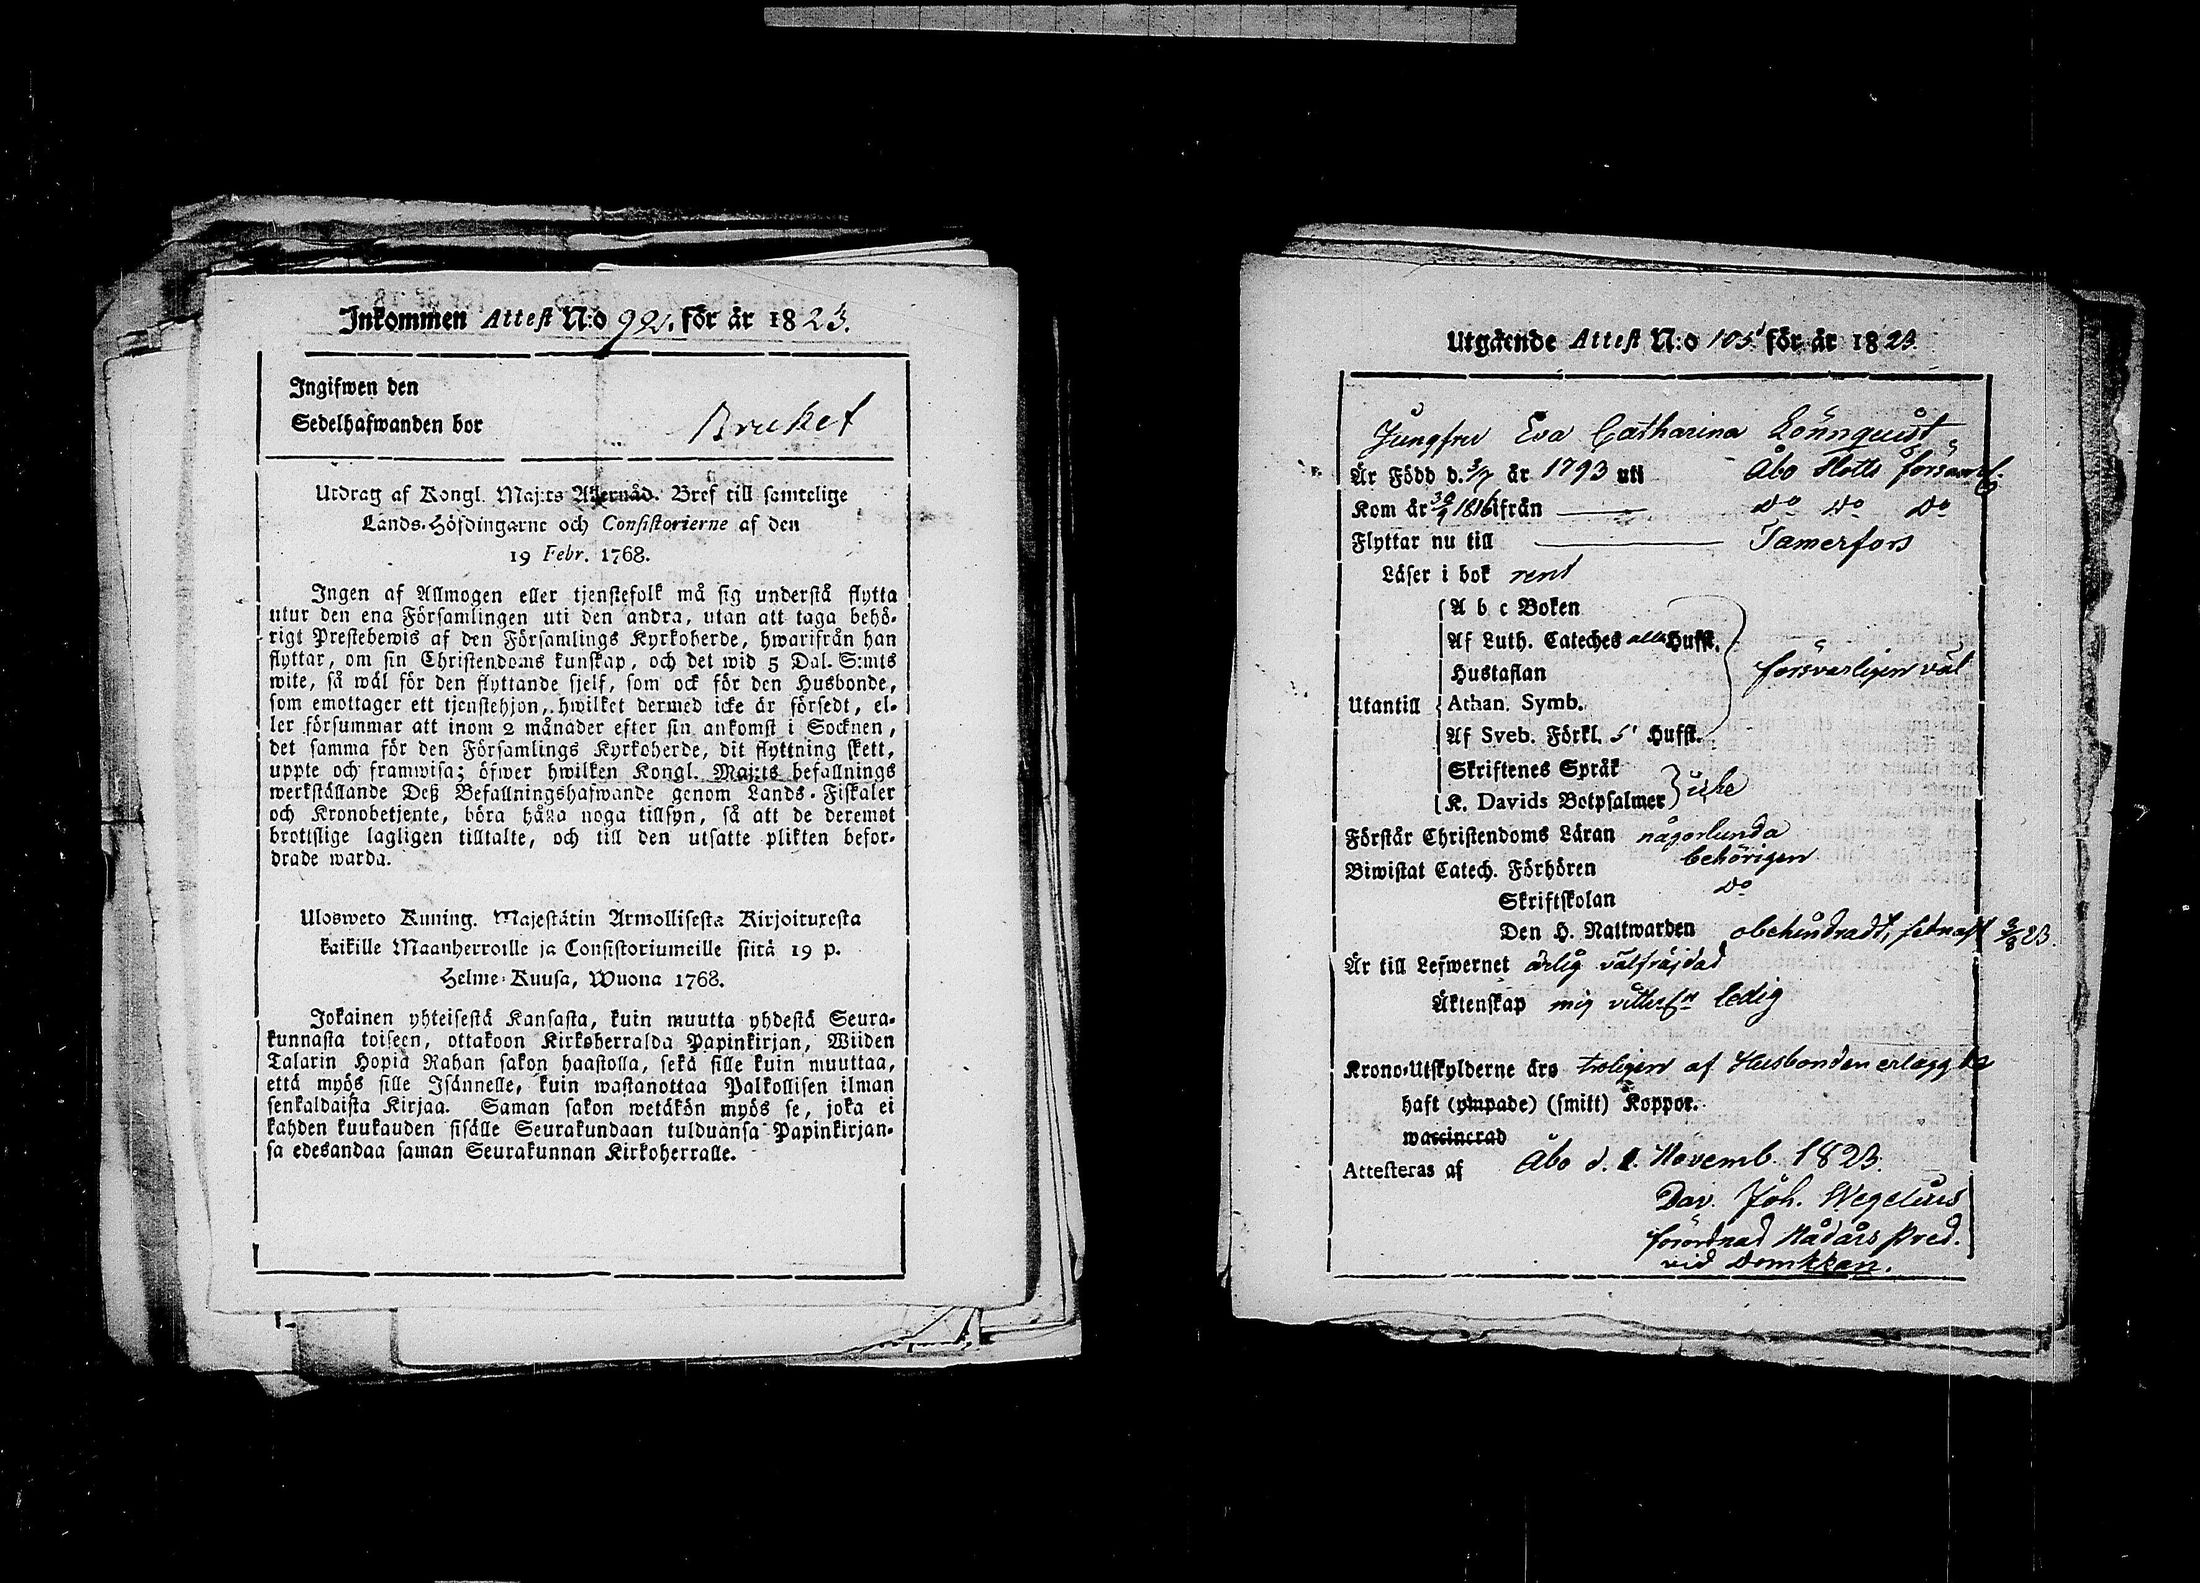 Inkommen Attest N:o 92. för år 1823.
Ingifwen den
Sedelhafwanden bor Bruket
Utdrag af Kongl. Maj:ts Allernåd. Bref till samtelige
Lands-Höfdingarne och Consistorierne af den
19 Febr. 1768.
Ingen af Allmogen eller tjenstefolk må sig understå flytta
utur den ena Församlingen uti den andra, utan att taga behö-
rigt Prestebewis af den Församlings Kyrkoherde, hwarifrån han
flyttar, om sin Christendoms kunskap, och det wid 5 Dal. S:mts
wite, så wäl för den flyttande sjelf, som ock för den Husbonde,
som emottager ett tjenstehjon, hwilket dermed icke är försedt, el-
ler försummar att inom 2 månader efter sin ankomst i Socknen,
det samma för den Församlings Kyrkoherde, dit flyttning skett,
uppte och framwisa; öfwer hwilken Kongl. Maj:ts befallnings
werkställande Deß Befallningshafwande genom Lands-Fiskaler
och Kronobetjente, böra hålla noga tillsyn, så att de deremot
brottslige lagligen tilltalte, och till den utsatte plikten befor-
drade warda.
Ulosweto Kuning. Majestätin Armollisesta Kirjoituxesta
kaikille Maanherroille ja Consistoriumeille siitä 19 p.
Helme-Kuusa, Wuona 1768.
Jokainen yhteisestä Kansasta, kuin muutta yhdestä Seura-
kunnasta toiseen, ottakoon Kirkoherralda Papinkirjan, Wiiden
Talarin Hopia Rahan sakon haastolla, sekä sille kuin muuttaa,
että myös sille Isännelle, kuin wastanottaa Palkollisen ilman
senkaldaista Kirjaa. Saman sakon wetäkön myös se, joka ei
kahden kuukauden sisälle Seurakundaan tulduansa Papinkirjan-
sa edesandaa saman Seurakunnan Kirkoherralle.
Utgående Attest N:o 105 för år 1823.
Jungfru Eva Catharina Lönnquist
Är Född d. 3/7 år 1793 uti Åbo Slotts församl.
Kom år 30/9 1816 ifrån do do do
Flyttar nu till Tamerfors
Läser i bok rent
A b c Boken
Af Luth. Cateches alla Hufst.
Hustaflan försvarligen väl
Utantill Athan. Symb.
Af Sveb. Förkl. 5 Hufst.
Skriftenes Språk
K. Davids Botpsalmer icke
Förstår Christendoms Läran någorlunda
Biwistat Catech. Förhören behörigen
Skriftskolan do
Den H. Nattwarden obehindradt, sednast 3/8 23.
Är till Lefwernet ärlig välfräjdad
Äktenskap mig vitterl:n ledig
Krono-Utskylderne äro troligen af Husbonden erlaggde
haft (ympade) (smitt) Koppor.
waccinerad
Attesteras af Åbo d. 1. Novemb. 1823.
Dav. Joh. Wegelius
förordnad Nådårs Pred.
vid Domkkan.